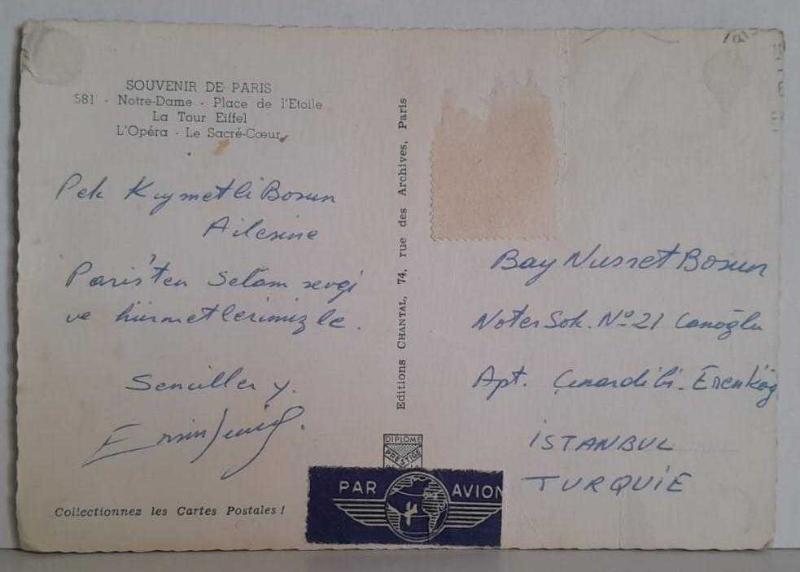 SOUVENIR DE PARIS
581 - Notre-Dame - Place de l'Etoile
La Tour Eiffel
L'Opéra - Le Sacré-Cœur
Pek Kıymetli Bosun
Ailesine
Paris'ten Selâm sevgi
ve hürmetlerimizle.
Collectionnez les Cartes Postales !
Editions CHANTAL, 74, rue des Archives, Paris
DIPLOME
PRESTIGE
PAR AVION
Bay Nusret Bosun
Noter Sok. No 21 Canoğlu
Apt. Çınardibi - Erenköy
İSTANBUL
TURQUIE